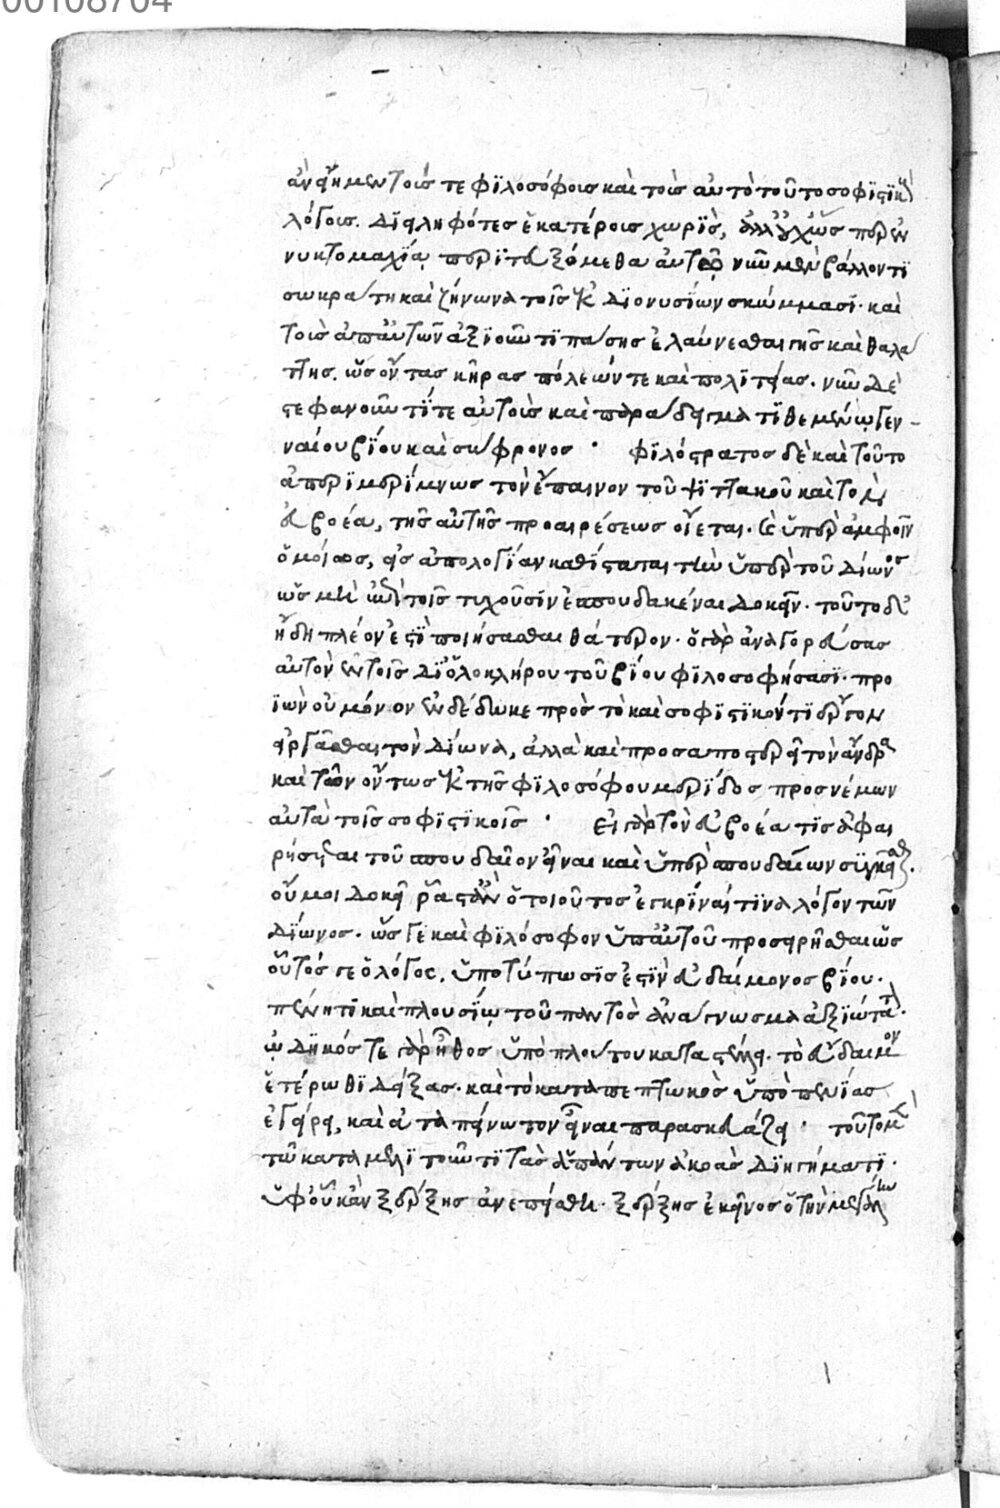 00108704
ἀνειμένοις τε φιλοσόφοις καὶ τοῖς αὐτὸ τοῦτο σοφιστικοῖς
λόγοις. διειληφότες ἑκατέροις χωρίς, ἀλλ' οὐχ ὡς περ ἐν
νυκτομαχίᾳ περιταξόμεθα αὐτῷ νῦν μὲν βάλλοντι
σωκράτη καὶ ζήνωνα τοῖς ἐκ διονυσίων σκώμμασι· καὶ
τοὺς ἀπ' αὐτῶν ἀξιοῦντι πάσης ἐλαύνεσθαι γῆς καὶ θαλά
ττης. ὡς ὄντας κῆρας πόλεών τε καὶ πολιτείας· νῦν δὲ
στεφανοῦντί τε αὐτοὺς καὶ παράδειγμα τιθεμένῳ γεν-
ναίου βίου καὶ σώφρονος · φιλόστρατος δὲ καὶ τοῦτο
ἀπεριμερίμνως τὸν ἔπαινον τοῦ ψιττακοῦ καὶ τὸν
εὐβοέα, τῆς αὐτῆς προαιρέσεως οἴεται. καὶ ὑπὲρ ἀμφοῖν
ὁμοίως, εἰς ἀπολογίαν καθίσταται τὴν ὑπὲρ τοῦ δίωνος
ὡς μὴ ἐπὶ τοῖς τυχοῦσιν ἐσπουδακέναι δοκεῖν· τοῦτο δ'
ἤδη πλέον ἐστὶ ποιήσασθαι θάτερον· ὁ γὰρ ἀναγορεύσας
αὐτὸν ἐν τοῖς δι' ὁλοκλήρου τοῦ βίου φιλοσοφήσασι· προ
ϊὼν οὐ μόνον ἐνδέδωκε πρὸς τὸ καὶ σοφιστικόν τι ἔργον
εἰργάσθαι τὸν δίωνα, ἀλλὰ καὶ προσαποστερεῖ τὸν ἄνδρα
καὶ τῶν ὄντως ἐκ τῆς φιλοσόφου μερίδος προσνέμων
αὐτὰ τοῖς σοφιστικοῖς · εἰ γὰρ τὸν εὐβοέα τις ἀφαι
ρήσεται τοῦ σπουδαῖον εἶναι καὶ ὑπὲρ σπουδαίων συγκεῖσθαι.
οὔ μοι δοκεῖ ῥᾷστ' ἂν ὁ τοιοῦτος ἐγκρῖναί τινα λόγον τῶν
δίωνος. ὥς γε καὶ φιλόσοφον ὑπ' αὐτοῦ προσειρῆσθαι ὡς
οὗτός γε ὁ λόγος, ὑποτύπωσίς ἐστιν εὐδαίμονος βίου.
πένητι καὶ πλουσίῳ τοῦ παντὸς ἀνάγνωσμα ἀξιώτατον.
ᾠδηκός τε γὰρ ἦθος ὑπὸ πλούτου καταστέλλει. τὸ εὔδαιμον
ἑτέρωθι δείξας. καὶ τὸ καταπεπτωκὸς ὑπὸ πενίας
ἐγείρει, καὶ ἀταπείνωτον εἶναι παρασκευάζει · τοῦτο μὲν
τῷ καταμελιτοῦντι τὰς ἁπάντων ἀκοὰς διηγήματι.
ὑφ' οὗ κἂν ξέρξης ἀνεπείσθη. ξέρξης ἐκεῖνος ὁ τὴν μεγάλην